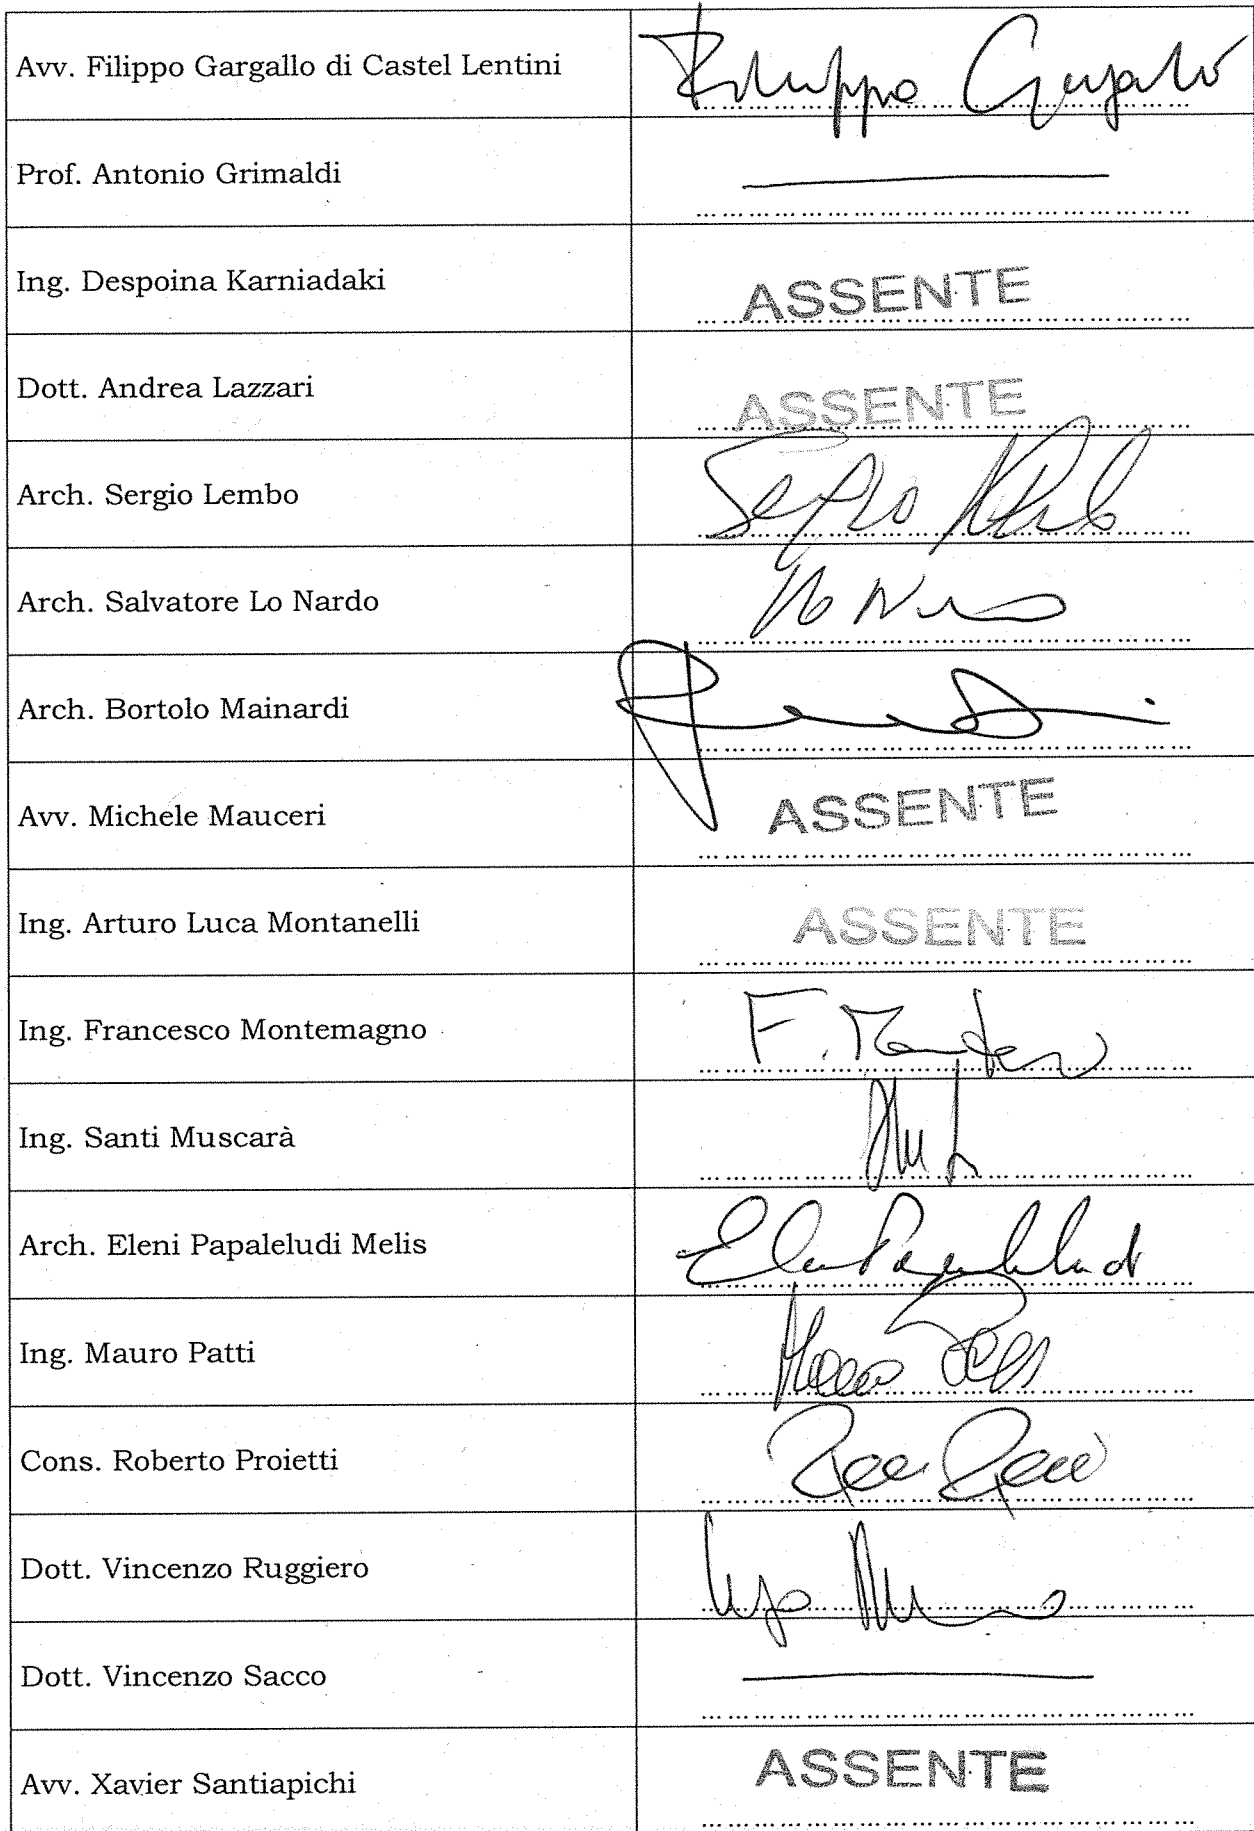 Avv. Filippo Gargallo di Castel Lentini Filippo Gargallo
Prof. Antonio Grimaldi
Ing. Despoina Karniadaki ASSENTE
Dott. Andrea Lazzari ASSENTE
Arch. Sergio Lembo Sergio
Arch. Salvatore Lo Nardo
Arch. Bortolo Mainardi
Avv. Michele Mauceri ASSENTE
Ing. Arturo Luca Montanelli ASSENTE
Ing. Francesco Montemagno F.
Ing. Santi Muscarà
Arch. Eleni Papaleludi Melis
Ing. Mauro Patti
Cons. Roberto Proietti
Dott. Vincenzo Ruggiero
Dott. Vincenzo Sacco
Avv. Xavier Santiapichi ASSENTE